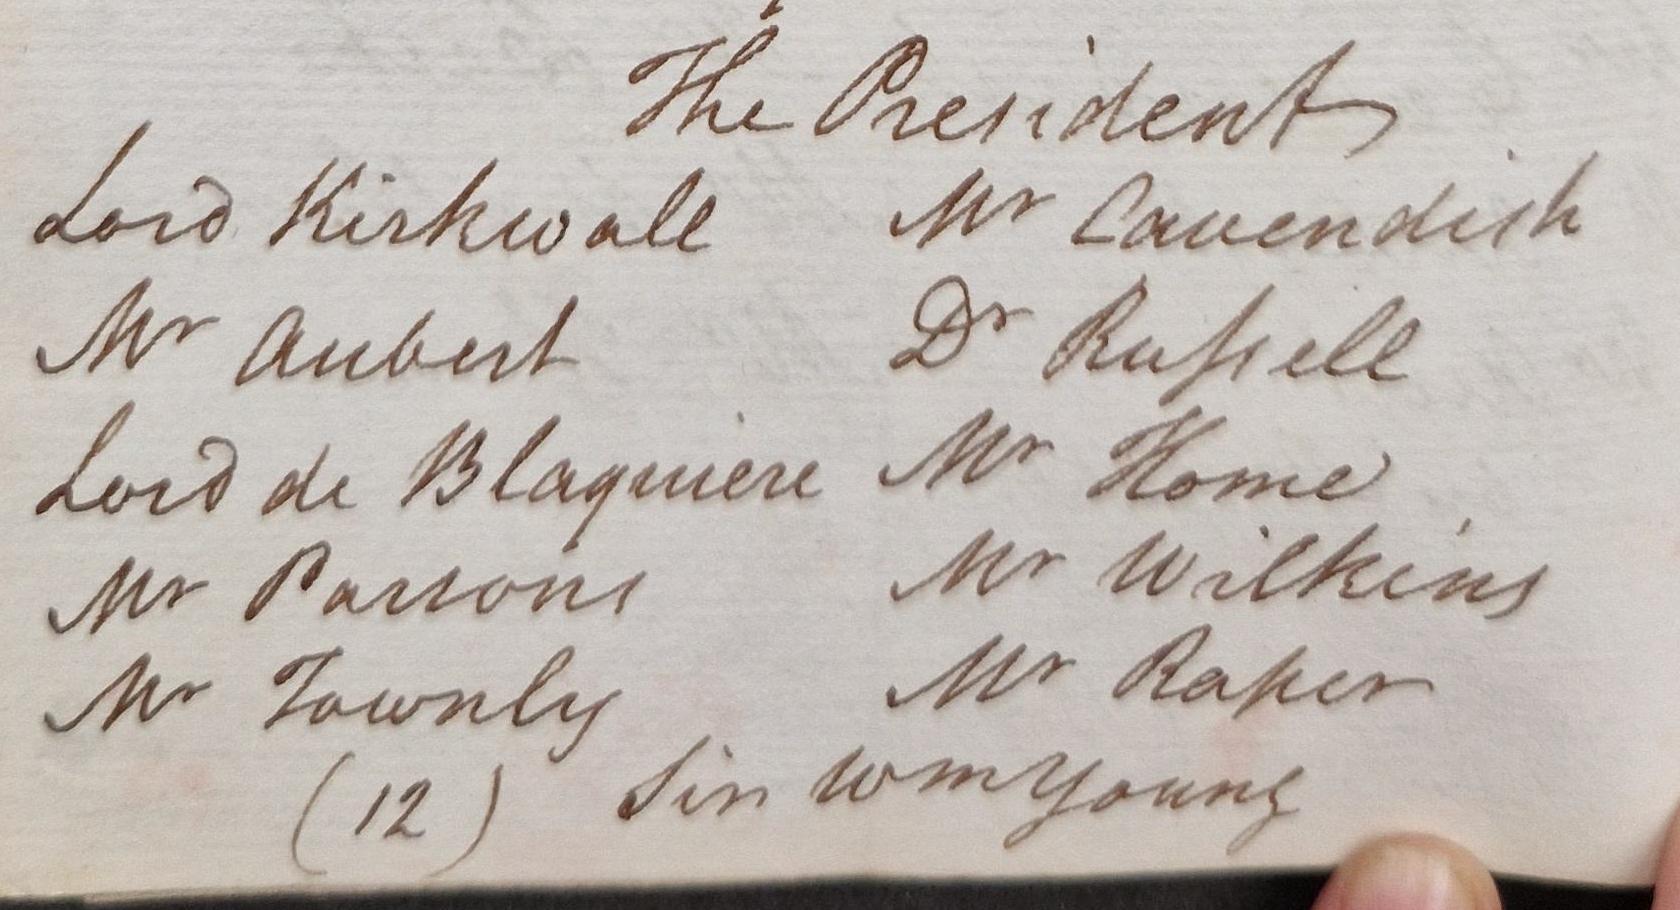 The President
Lord Kirkwall Mr Cavendish
Mr Aubert Dr Russell
Lord de Blaquiere Mr Home
Mr Parsons Mr Wilkins
Mr Townly Mr Raper
(12) Sir Wm Young